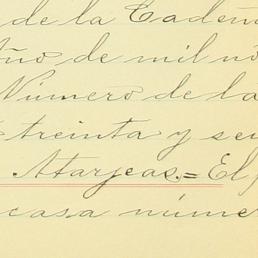 de la Cadeña
Año de mil no
Número de la
treinta y se
Atarjeas.= El
casa núme